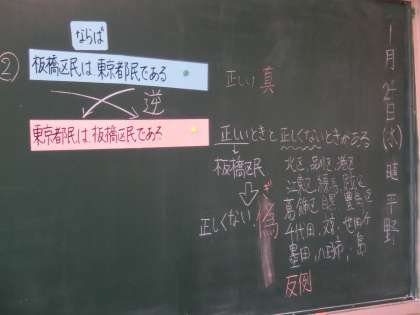 ならば
②
板橋区民は、東京都民である
正しい 真
逆
東京都民は、板橋区民である
正しいときと正しくないときがある
板橋区民
正しくない 偽
ぎ
北区、品川区、港区
江東区、練馬
葛飾区、目黒、豊島区
千代田、文京、世田谷
墨田、八王子市、島
反例
1月
日(水)
日直 平野